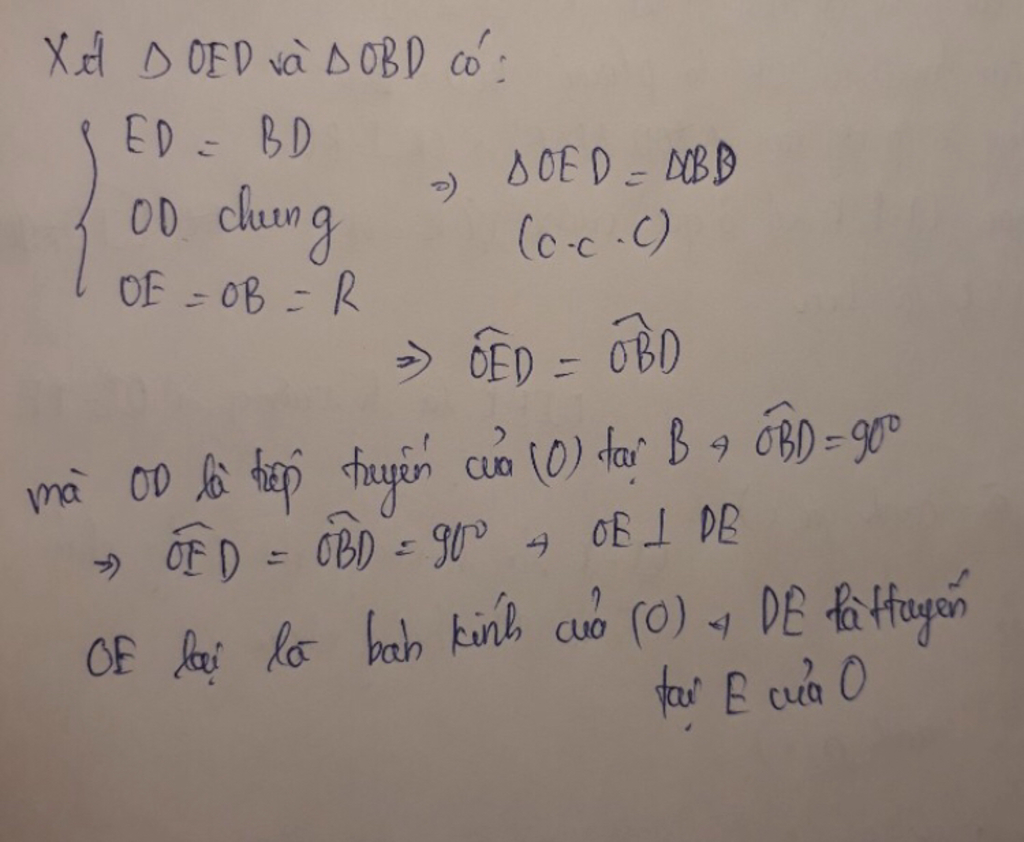 Xét Δ OED và Δ OBD có:
ED = BD
OD chung
OE = OB = R
=> ΔOED = ΔOBD
(c.c.c)
=> \widehat{OED} = \widehat{OBD}
mà OD là tiếp tuyến của (O) tại B → \widehat{OBD} = 90°
=> \widehat{OED} = \widehat{OBD} = 90° → OE ⊥ DE
OE lại là bán kính của (O) → DE là ttuyến
tại E của O